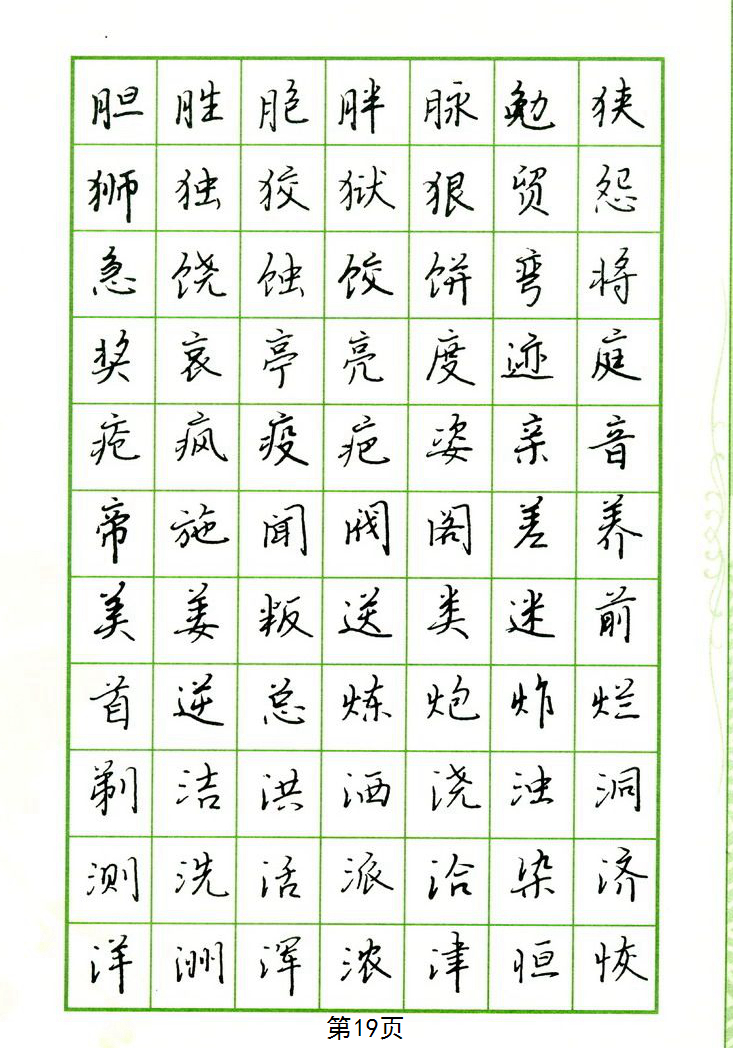 胆胜脆胖脉勉狭
狮独狡狱狠贸怨
急饶蚀饺饼弯将
奖哀亭亮度迹庭
疮疯疫疤姿亲音
帝施闻阀阁差养
美姜叛送类迷前
首逆总炼炮炸烂
剃洁洪洒浇浊洞
测洗活派洽染济
洋洲浑浓津恒恢
第19页